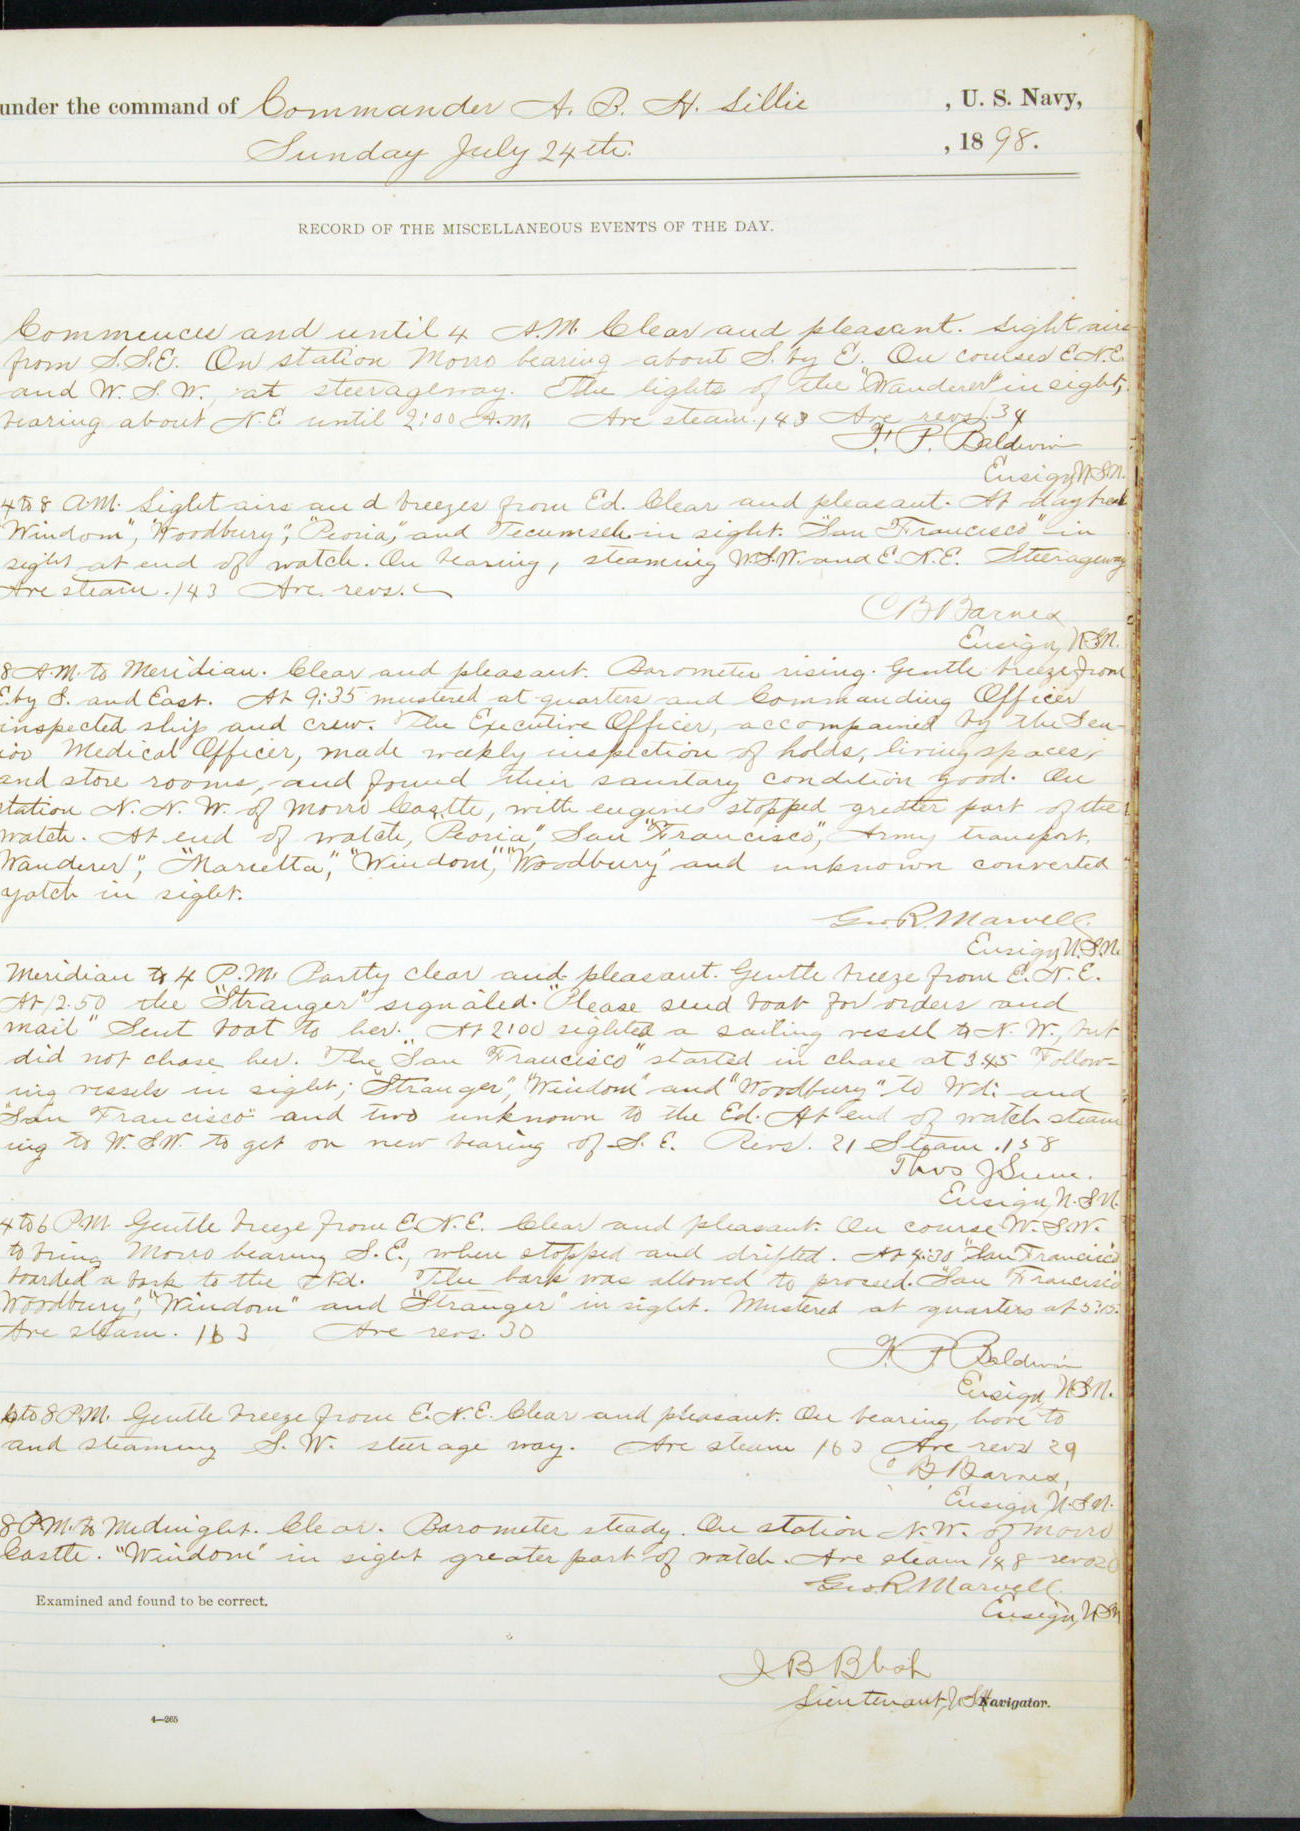 under the command of Commander A. B. H. Lillie , U. S. Navy,
Sunday July 24th. , 1898.
RECORD OF THE MISCELLANEOUS EVENTS OF THE DAY.
Commences and until 4 A.M. Clear and pleasant. Light airs
from S.S.E. On station Morro bearing about S. by E. On courses E.N.E.
and W. S. W., at steerageway. The lights of the "Wanderer" in sight,
bearing about N.E. until 2:00 A.M. Ave steam. 143 Ave revs. 34
F. P. Baldwin
Ensign, U.S.N.
4 to 8 A.M. Light airs and breezes from Ed. Clear and pleasant. At daybreak
"Windom", "Woodbury", "Peoria", and Tecumseh in sight. "San Francisco" in
sight at end of watch. On bearing, steaming W.S.W. and E.N.E. Steerageway
Ave steam. 143 Ave. revs.
C B Barnes
Ensign, U.S.N.
8 A.M. to Meridian. Clear and pleasant. Barometer rising. Gentle breeze from
E. by S. and East. At 9:35 mustered at quarters and Commanding Officer
inspected ship and crew. The Executive Officer, accompanied by the Sen-
ior Medical Officer, made weekly inspection of holds, living spaces,
and store rooms, and found their sanitary condition good. On
station N. N. W. of Morro Castle, with engines stopped greater part of the
watch. At end of watch, "Peoria", San "Francisco", Army transport,
Wanderer", "Marietta", "Windom", "Woodbury" and unknown converted
yatch in sight.
Geo. R. Marvell
Ensign U.S.N.
Meridian to 4 P.M. Partly clear and pleasant. Gentle breeze from E.N.E.
At 12.50 the "Stranger" signaled. "Please send boat for orders and
mail" Sent boat to her. At 2:00 sighted a sailing vessel to N. W., but
did not chase her. The "San Francisco" started in chase at 3.45 Follow-
ing vessels in sight; "Stranger", "Windom" and "Woodbury" to Wd: and
"San Francisco" and two unknown to the Ed. At end of watch steam
ing to W.S.W. to get on new bearing of S. E. Revs. 21 Steam. 158
Thos J
Ensign, U.S.N.
4 to 6 P.M. Gentle breeze from E.N.E. Clear and pleasant. On course W.S.W.
to bring Morro bearing S. E., when stopped and drifted. At 4:30 "San Francisco
boarded a bark to the Nd. The bark was allowed to prossed. "San Francisco
Woodbury", "Windom" and "Stranger" in sight. Mustered at quarters at 5:15.
Ave steam. 163 Ave revs. 30
F. P. Baldwin
Ensign U.S.N.
6 to 8 P.M. Gentle breeze from E.N.E. Clear and pleasant. On bearing, hove to
and steaming S. W. steerage way. Ave steam 163 Ave revs 29
C B Barnes,
Ensign U.S.N.
8 P.M. to Midnight. Clear. Barometer steady. On station N. W. of Morro
Castle. "Windom" in sight greater part of watch. Ave steam 148 revs
Geo. R Marvell
Ensign, U.S.N
Examined and found to be correct.
J B
Lieutenant, U.S.N Navigator.
4—265